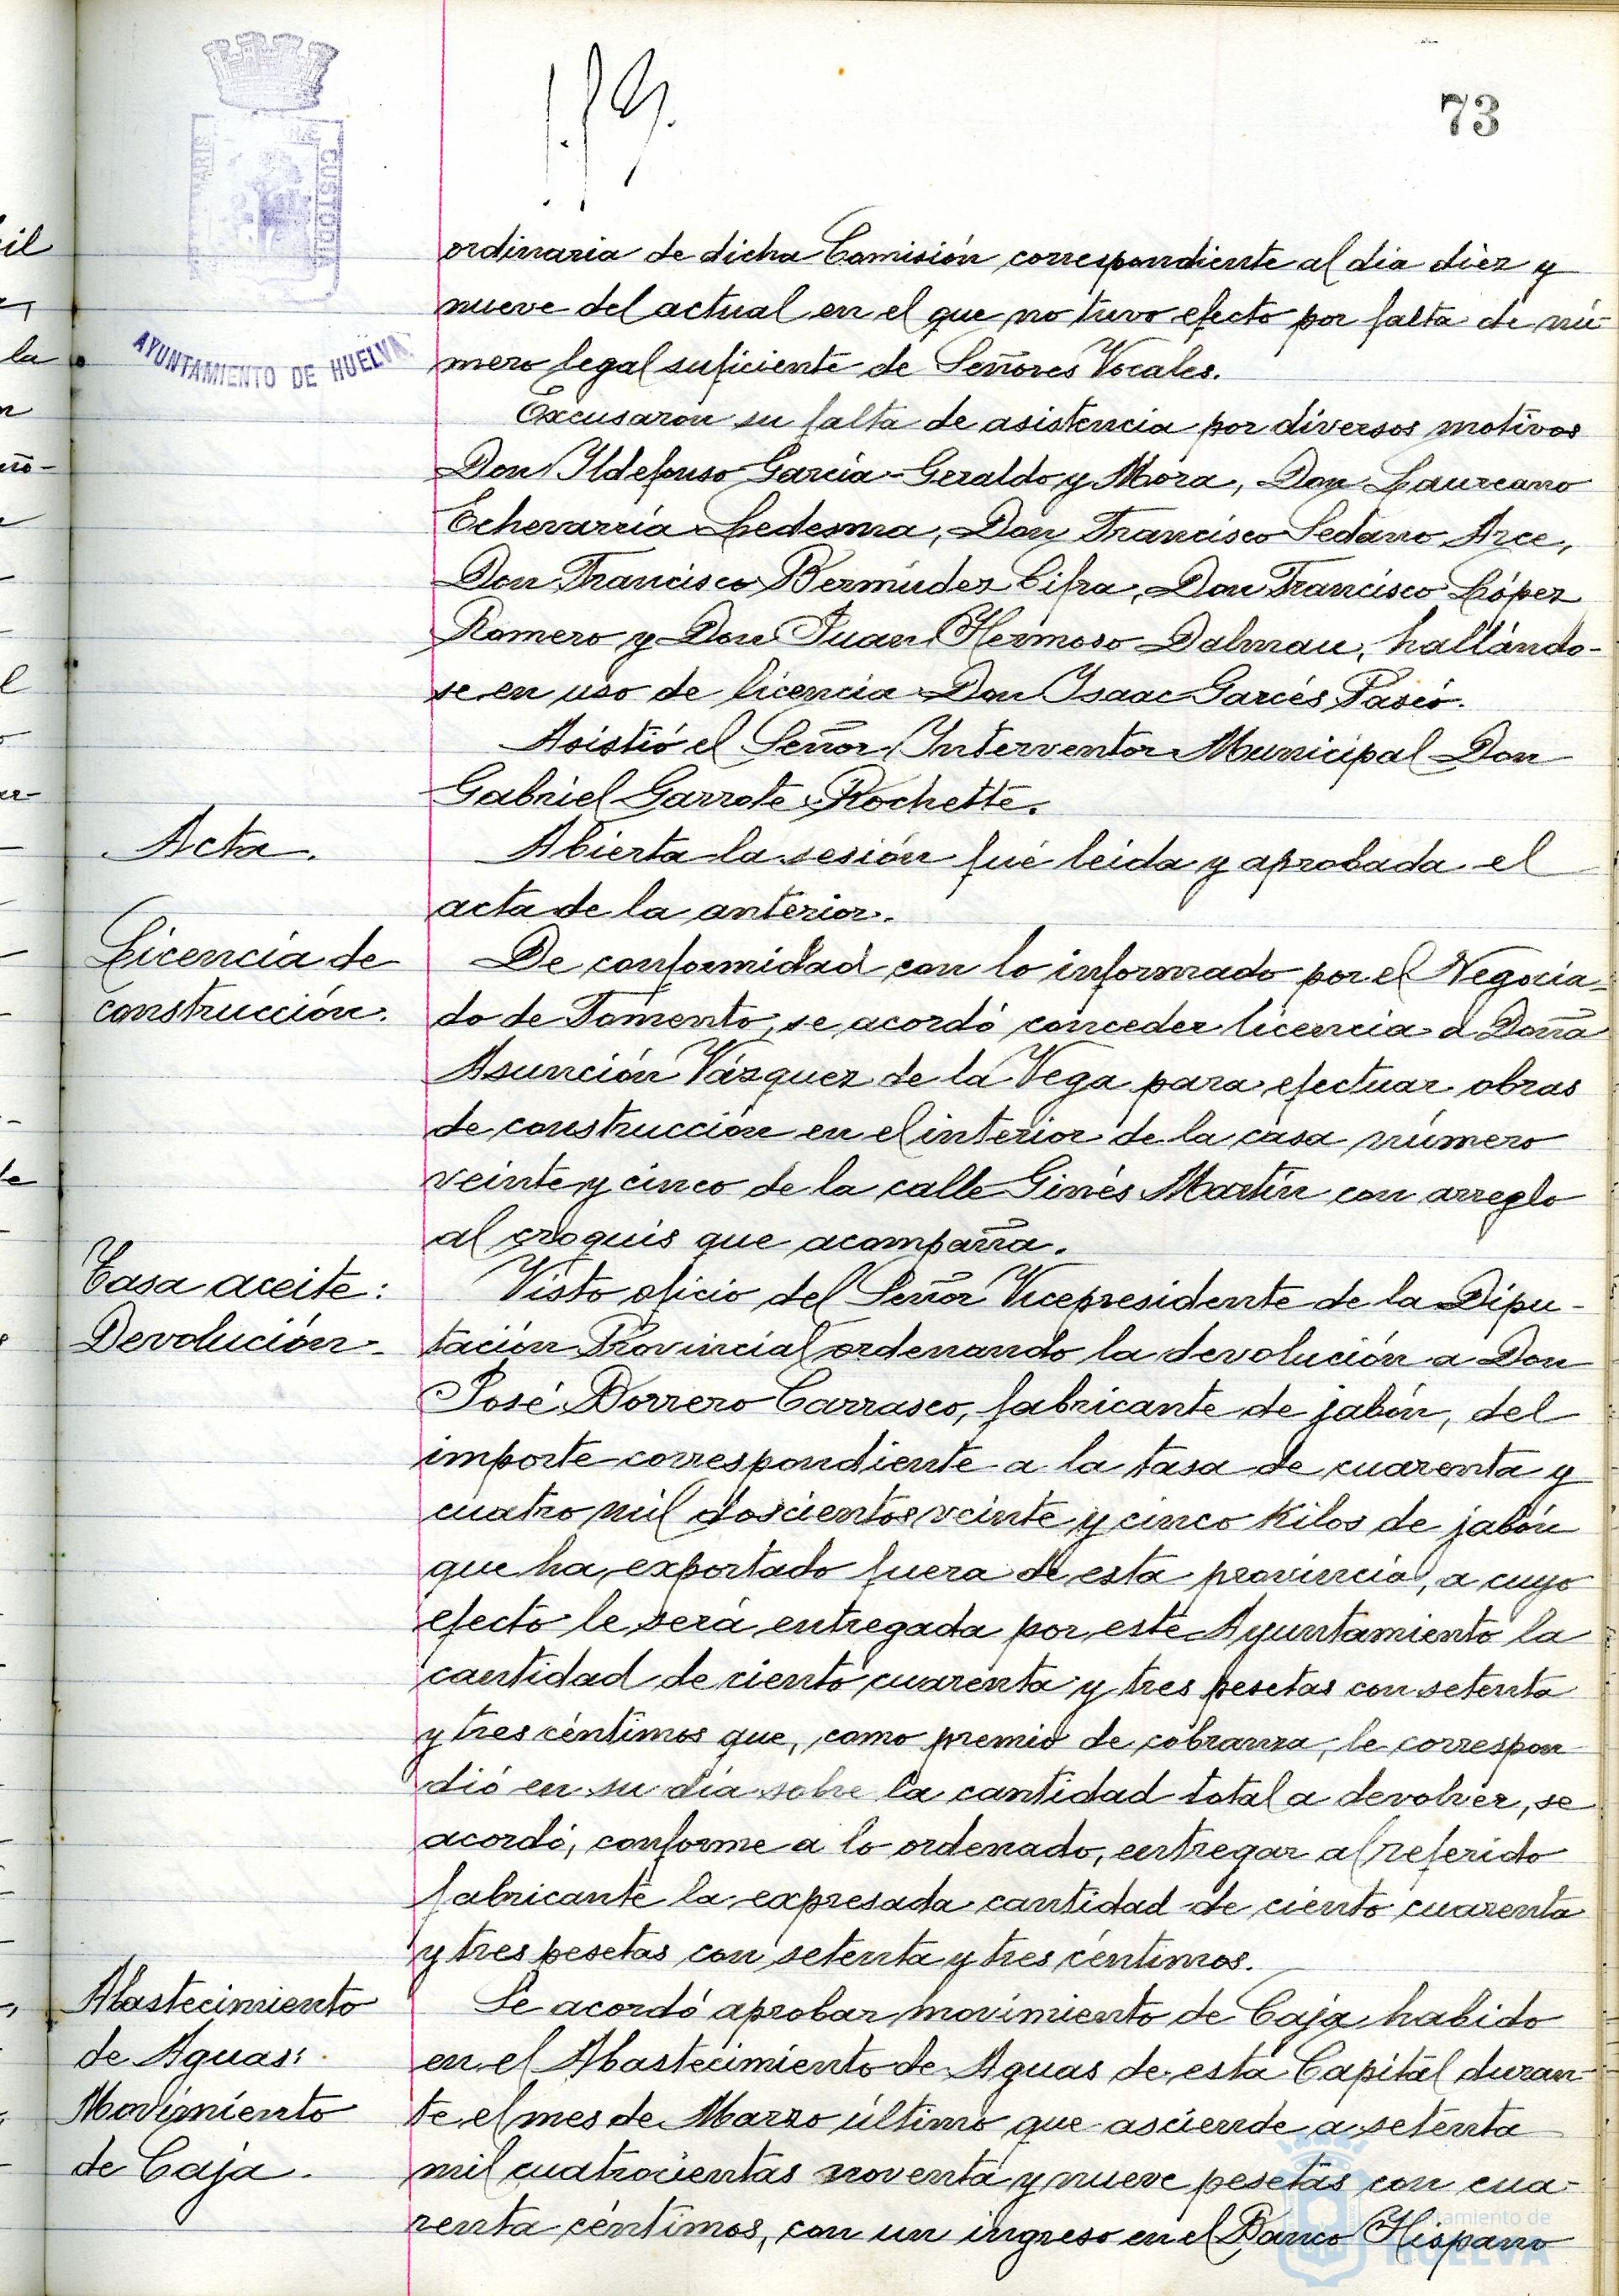 73
AYUNTAMIENTO DE HUELVA
ordinaria de dicha Comisión correspondiente al dia diez y
nueve del actual en el que no tuvo efecto por falta de nú-
mero legal suficiente de Señores Vocales.
Excusaron su falta de asistencia por diversos motivos
Don Ildefonso Garcia-Geraldo y Mora, Don Laureano
Echevarría Ledesma, Don Francisco Sedano Arce,
Don Francisco Bermúdez Cifra, Don Francisco López
Romero y Don Juan Hermoso Dalmau, hallándo-
se en uso de licencia Don Isaac Garcés
Asistió el Señor Interventor Municipal Don
Gabriel Garrote Rochette.
Acta.
Abierta la sesión fué leida y aprobada el
acta de la anterior.
Licencia de
construcción.
De conformidad con lo informado por el Negocia-
do de Fomento, se acordó conceder licencia a Doña
Asunción Vázquez de la Vega para efectuar obras
de construcción en el interior de la casa número
veinte y cinco de la calle Ginés Martín con arreglo
al croquis que acompaña.
Tasa aceite:
Devolución.
Visto oficio del Señor Vicepresidente de la Dipu-
tación Provincial ordenando la devolución a Don
José Borrero Carrasco, fabricante de jabón, del
importe correspondiente a la tasa de cuarenta y
cuatro mil doscientos veinte y cinco kilos de jabón
que ha exportado fuera de esta provincia, a cuyo
efecto le será entregada por este Ayuntamiento la
cantidad de ciento cuarenta y tres pesetas con setenta
y tres céntimos que, como premio de cobranza, le correspon
dió en su día sobre la cantidad total a devolver, se
acordó, conforme a lo ordenado, entregar al referido
fabricante la expresada cantidad de ciento cuarenta
y tres pesetas con setenta y tres céntimos.
Abastecimiento
de Aguas:
Movimiento
de Caja.
Se acordó aprobar movimiento de Caja habido
en el Abastecimiento de Aguas de esta Capital duran-
te el mes de Marzo último que asciende a setenta
mil cuatrocientas noventa y nueve pesetas con cua-
renta céntimos, con un ingreso en el Banco Hispano
HUELVA